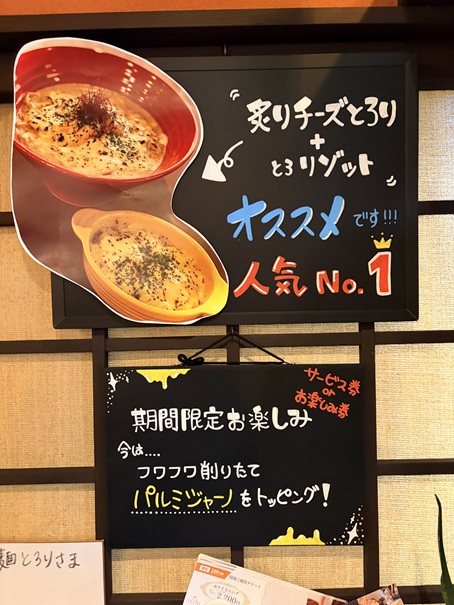 "炙りチーズとろり
+
とろリゾット"
オススメです!!!
人気 No.1
サービス券
or
お楽しみ券
期間限定お楽しみ
今は....
フワフワ削りたて
パルミジャーノをトッピング!
麺とろりさま
2,200